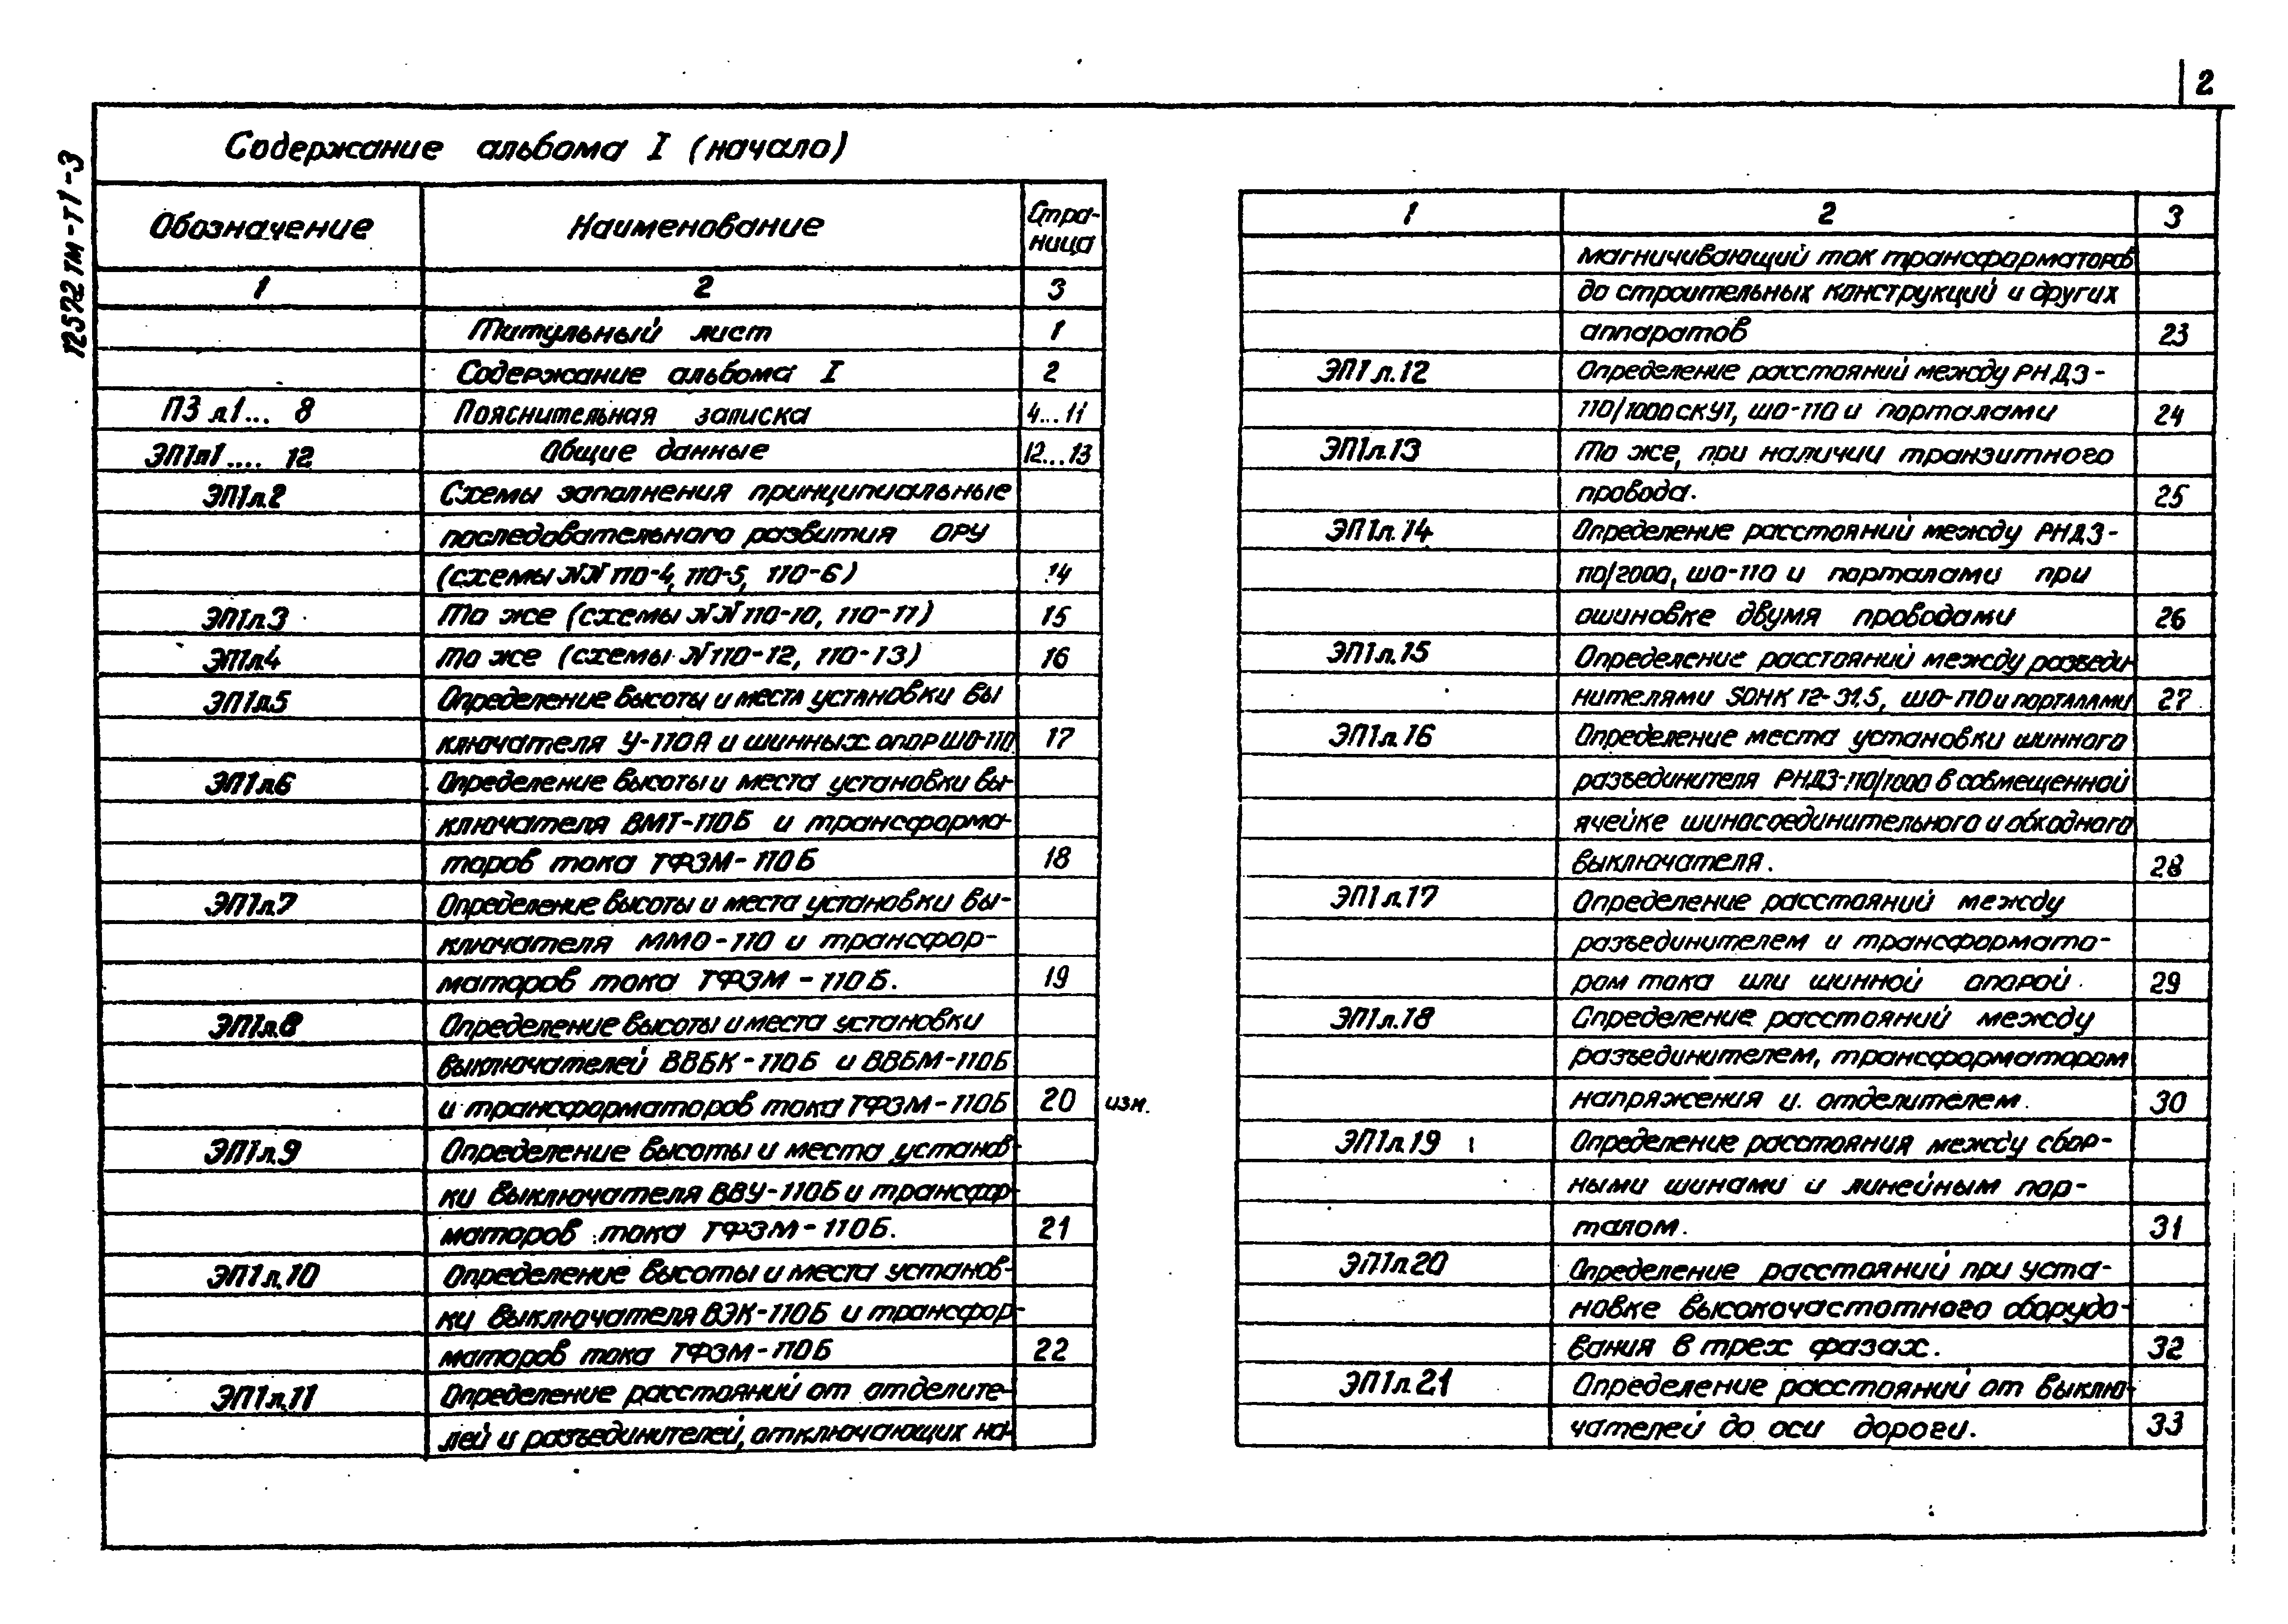 2
12572 тм-т1-3
Содержание альбома I (начало)
Обозначение Наименование Стра-
ница
1 2 3
Титульный лист 1
Содержание альбома I 2
ПЗ л1... 8 Пояснительная записка 4...11
ЭП1л1.... 12 Общие данные 12...13
ЭП1л.2 Схемы заполнения принципиальные
последовательного развития ОРУ
(схемы NN 110-4, 110-5, 110-6) 14
ЭП1л.3 То же (схемы NN 110-10, 110-11) 15
ЭП1л.4 То же (схемы N 110-12, 110-13) 16
ЭП1л.5 Определение высоты и места установки вы
ключателя У-110А и шинных опор ШО-110 17
ЭП1л.6 Определение высоты и места установки вы-
ключателя ВМТ-110Б и трансформа-
торов тока ТФЗМ-110Б 18
ЭП1л.7 Определение высоты и места установки вы-
ключателя ММО-110 и трансфор-
маторов тока ТФЗМ-110Б. 19
ЭП1л.8 Определение высоты и места установки
выключателей ВВБК-110Б и ВВБМ-110Б
и трансформаторов тока ТФЗМ-110Б 20 изм.
ЭП1л.9 Определение высоты и места установ-
ки выключателя ВВУ-110Б и трансфор-
маторов тока ТФЗМ-110Б. 21
ЭП1л.10 Определение высоты и места установ-
ки выключателя ВЭК-110Б и трансфор-
маторов тока ТФЗМ-110Б 22
ЭП1л.11 Определение расстояний от отделите-
лей и разъединителей, отключающих на-
1 2 3
магничивающий ток трансформаторов
до строительных конструкций и других
аппаратов 23
ЭП1л.12 Определение расстояний между РНДЗ-
110/1000 СКУ1, ШО-110 и порталами 24
ЭП1л.13 То же, при наличии транзитного
провода. 25
ЭП1л.14 Определение расстояний между РНДЗ-
110/2000, ШО-110 и порталами при
ошиновке двумя проводами 26
ЭП1л.15 Определение расстояний между разъеди-
нителями SOHK 12-31.5, ШО-110 и порталами 27
ЭП1л.16 Определение места установки шинного
разъединителя РНДЗ-110/1000 в совмещенной
ячейке шиносоединительного и обходного
выключателя. 28
ЭП1л.17 Определение расстояний между
разъединителем и трансформато-
ром тока или шинной опорой. 29
ЭП1л.18 Определение расстояний между
разъединителем, трансформатором
напряжения и отделителем. 30
ЭП1л.19 Определение расстояния между сбор-
ными шинами и линейным пор-
талом. 31
ЭП1л.20 Определение расстояний при уста-
новке высокочастотного оборудо-
вания в трех фазах. 32
ЭП1л.21 Определение расстояний от выклю-
чателей до оси дороги. 33